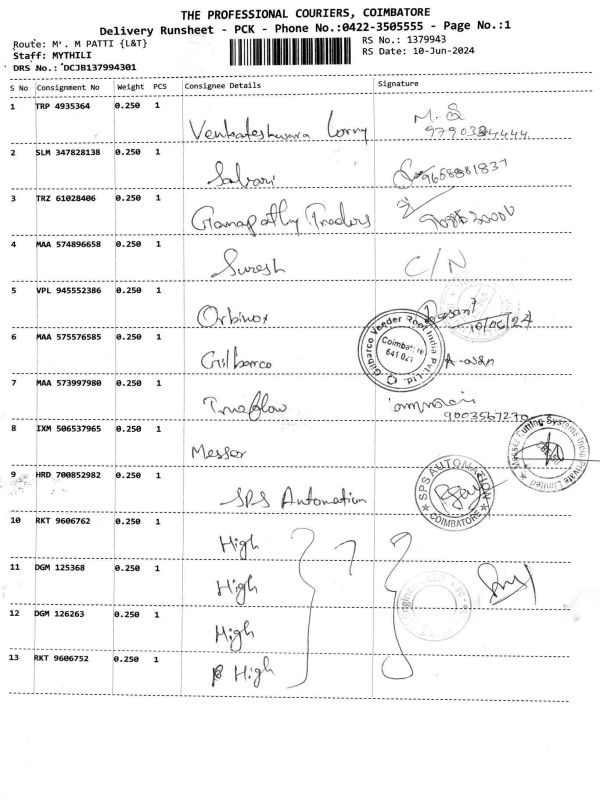 THE PROFESSIONAL COURIERS, COIMBATORE
Delivery Runsheet - PCK - Phone No.:0422-3505555 - Page No.:1
Route: M . M PATTI {L&T}
RS No.: 1379943
Staff: MYTHILI
RS Date: 10-Jun-2024
DRS No.: DCJB137994301
S No Consignment No Weight PCS Consignee Details Signature
1 TRP 4935364 0.250 1
Venkateshwara Lorry
2 SLM 347828138 0.250 1
9658881837
3 TRZ 61028406 0.250 1
Ganapathy Traders
4 MAA 574896658 0.250 1
Suresh C/N
5 VPL 945552386 0.250 1
Orbinox 10/06/24
6 MAA 575576585 0.250 1
Gilbarco
Gilbarco Veeder Root India Pvt. Ltd.
Coimbatore
641 021
7 MAA 573997980 0.250 1
Trueflow
9003567270
8 IXM 506537965 0.250 1
Messer
Messer Cutting Systems India Private Limited
9 HRD 700852982 0.250 1
SPS Automation
SPS AUTOMATION
COIMBATORE
10 RKT 9606762 0.250 1
High
11 DGM 125368 0.250 1
High
12 DGM 126263 0.250 1
High
13 RKT 9606752 0.250 1
High